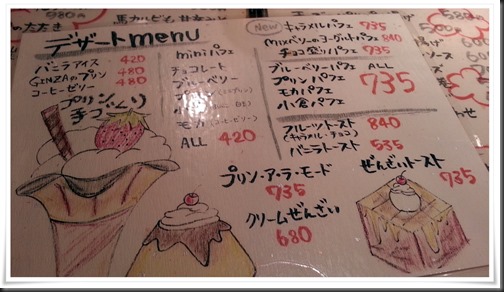 デザートmenu
バニラアイス 420
GENZAのプリン 480
コーヒーゼリー 480
プリン
手づくり
miniパフェ
チョコレート
ブルーベリー
プリン
モカ(コーヒーゼリー)
ALL 420
New キャラメルパフェ 735
Mixベリーのヨーグルトパフェ 840
チョコ盛りパフェ 735
ブルーベリーパフェ ALL
プリンパフェ 735
モカパフェ
小倉パフェ
フルーツトースト 840
(キャラメル・チョコ)
バニラトースト 535
プリン・ア・ラ・モード
735
クリームぜんざい
680
ぜんざいトースト
735